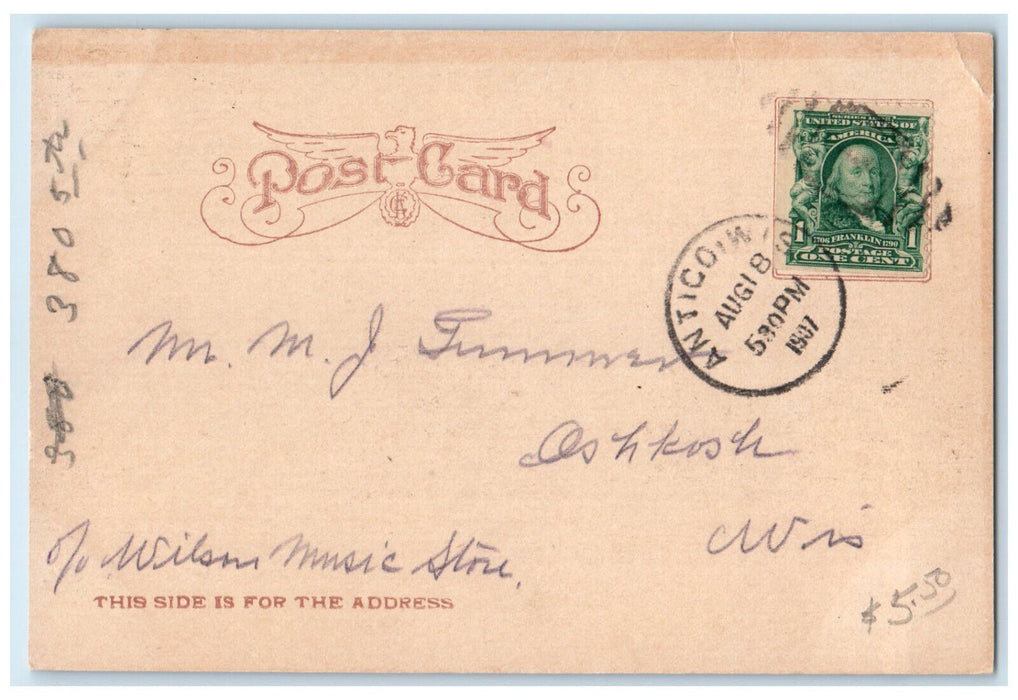 Post Card
SERIES 1902
UNITED STATES OF
AMERICA
1 1706 FRANKLIN 1790 1
POSTAGE
ONE CENT
ANTIGO, WIS
AUG 18
530PM
1907
Mr. M. J.
Oshkosh
Wis
c/o Wilson Music Store.
THIS SIDE IS FOR THE ADDRESS
$5.50
380 5th